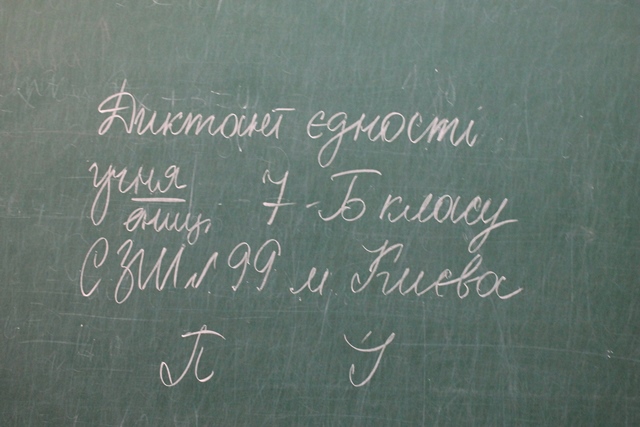 Диктант єдності
учня 7-Б класу
ениці
СЗШ № 99 м Києва
П І